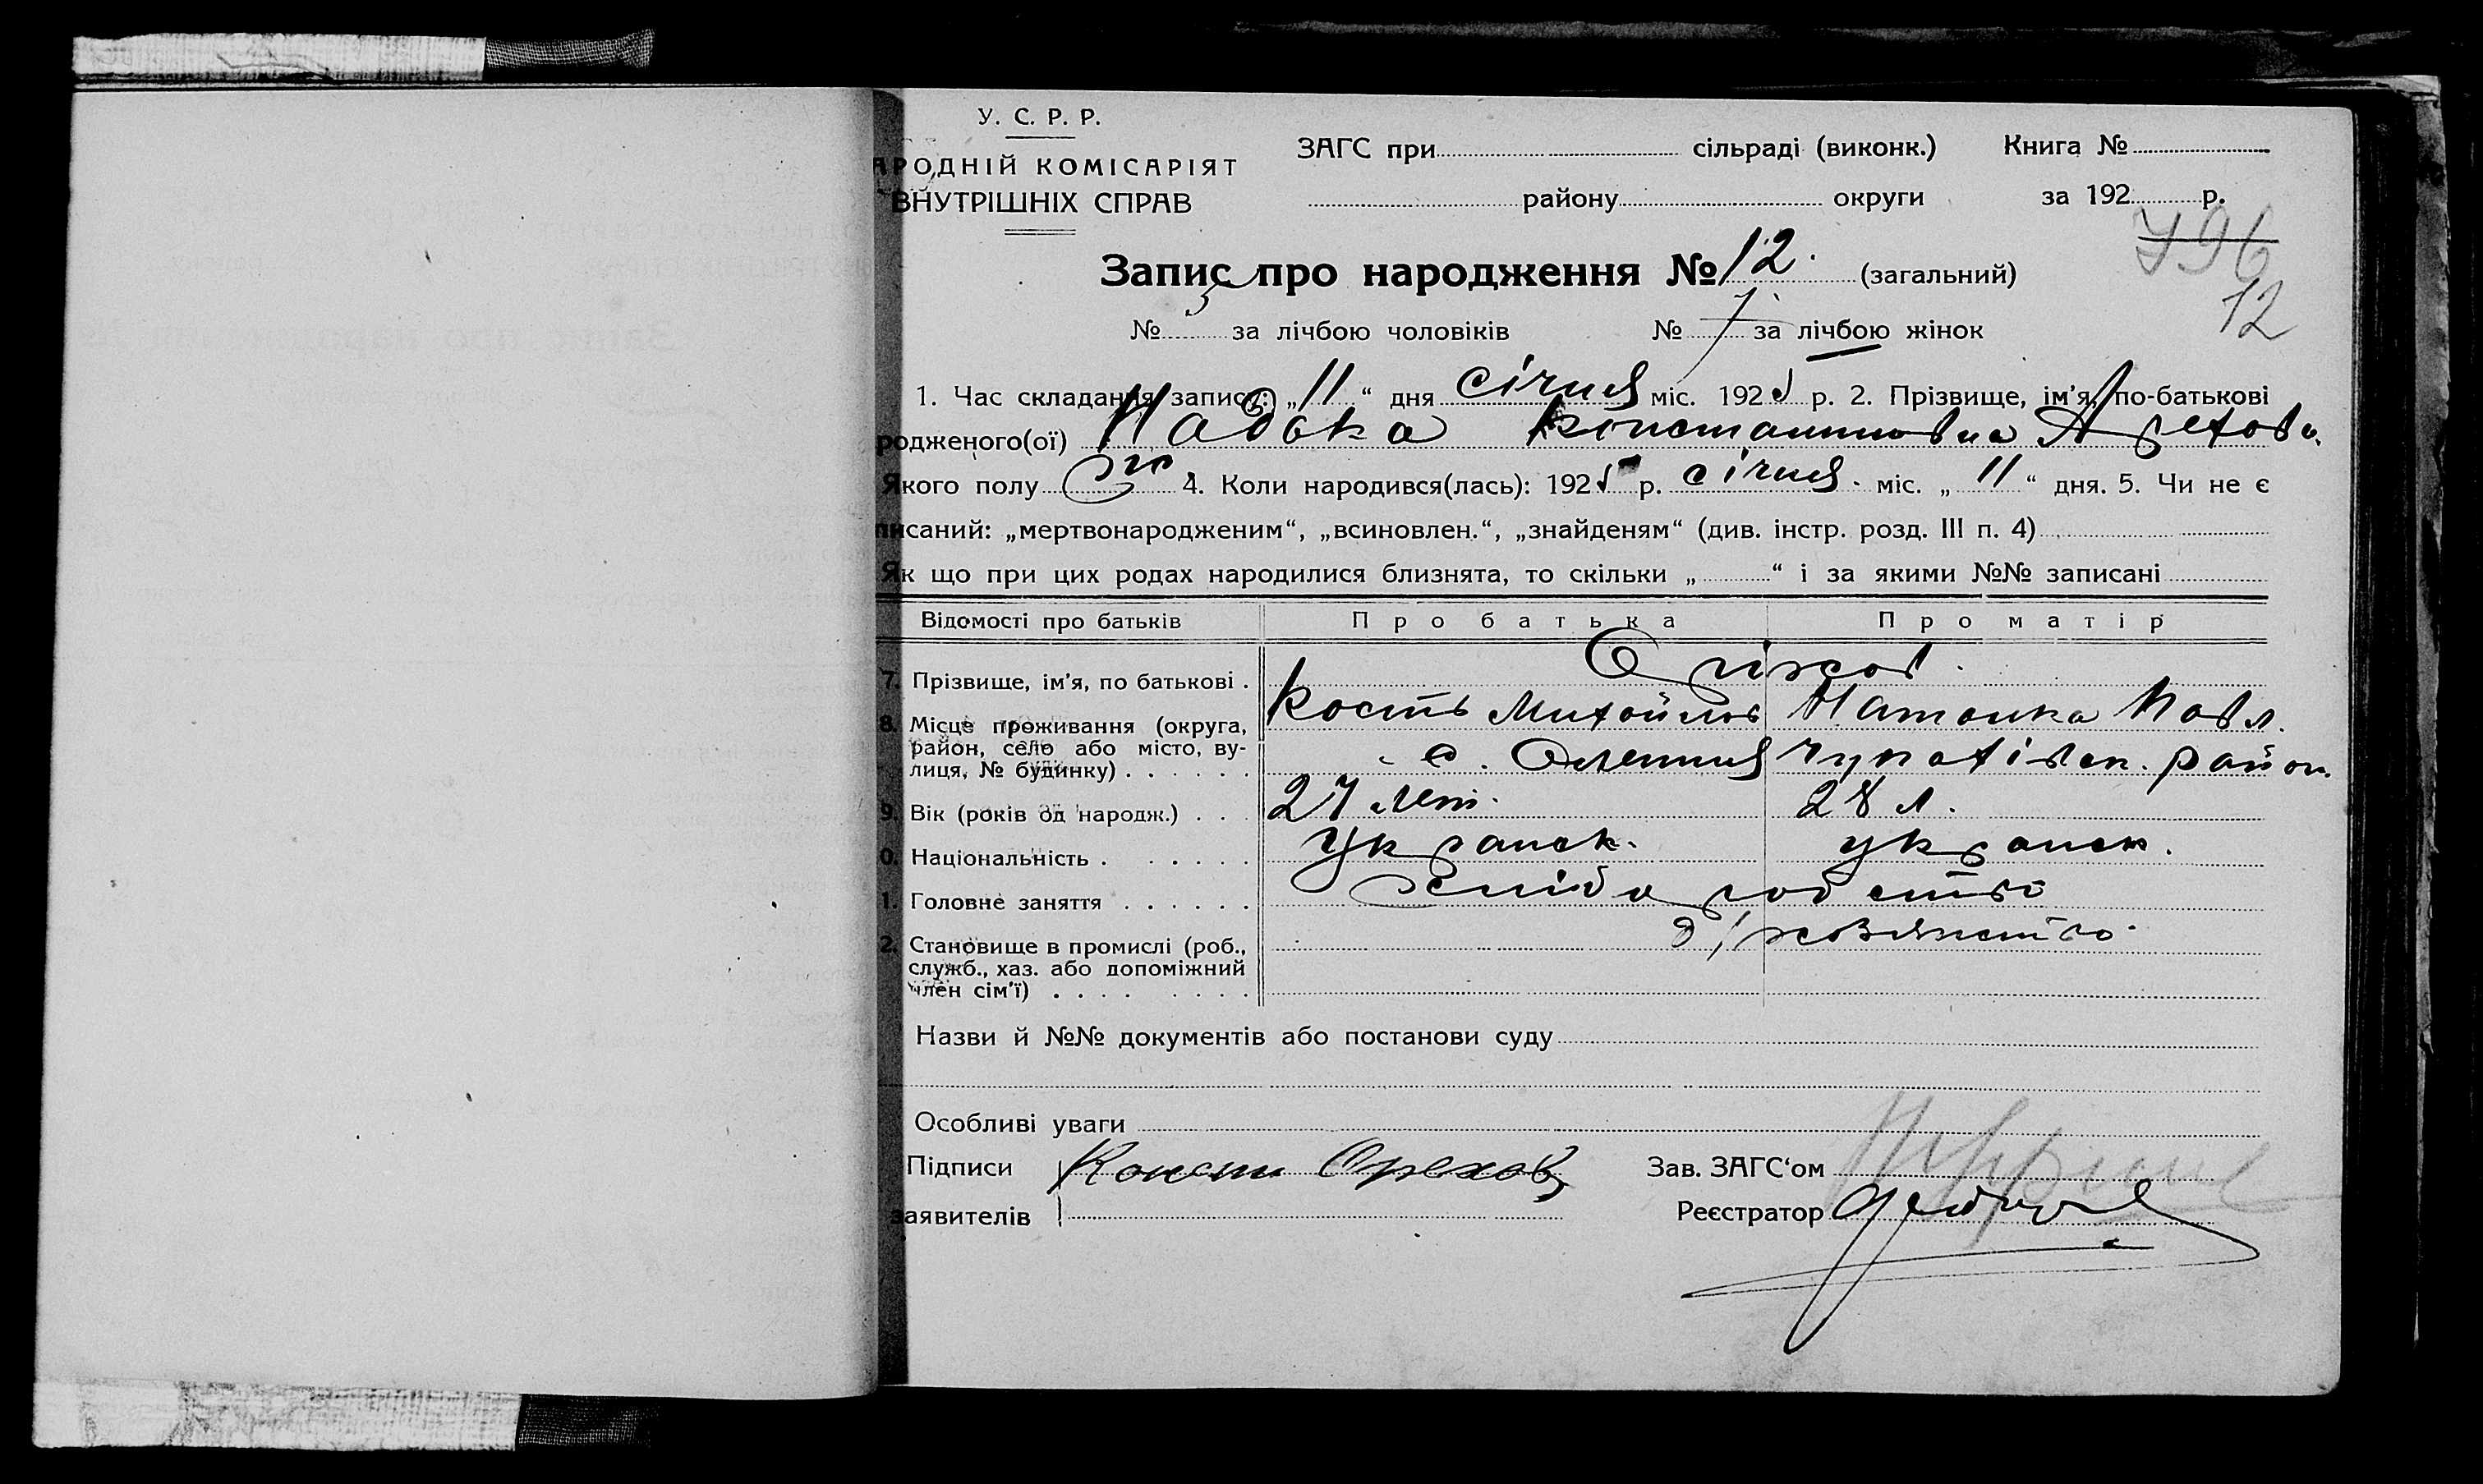 У. С. Р. Р.
АРОДНІЙ КОМІСАРІЯТ
ВНУТРІШНІХ СПРАВ
ЗАГС при сільраді (виконк.) Книга №
району округи за 192 р.
796
12
Запис про народження № 12. (загальний)
№ 5 за лічбою чоловіків № 7 за лічбою жінок
1. Час складання запису: „11“ дня січня міс. 1925 р. 2. Прізвище, ім'я, по-батькові
родженого(ої) Константиновна
Якого полу ж 4. Коли народився(лась): 1925 р. січня міс. „11“ дня. 5. Чи не є
писаний: „мертвонародженим“, „всиновлен.“, „знайденям“ (див. інстр. розд. III п. 4)
Як що при цих родах народилися близнята, то скільки „ “ і за якими №№ записані
Відомості про батьків Про батька Про матір
7. Прізвище, ім'я, по батькові .
Кость Михайлов
8. Місце проживання (округа,
район, село або місто, ву-
лиця, № будинку) . . . . . .
с. район.
9. Вік (років од народж.) . . . 27 лет. 28 л.
0. Національність . . . . . . Украиск. украиск.
1. Головне заняття . . . . . .
2. Становище в промислі (роб.,
служб., хаз. або допоміжний
член сім'ї) . . . . . . . .
Назви й №№ документів або постанови суду
Особливі уваги
Підписи Конст Орехов Зав. ЗАГС‘ом
заявителів Реєстратор